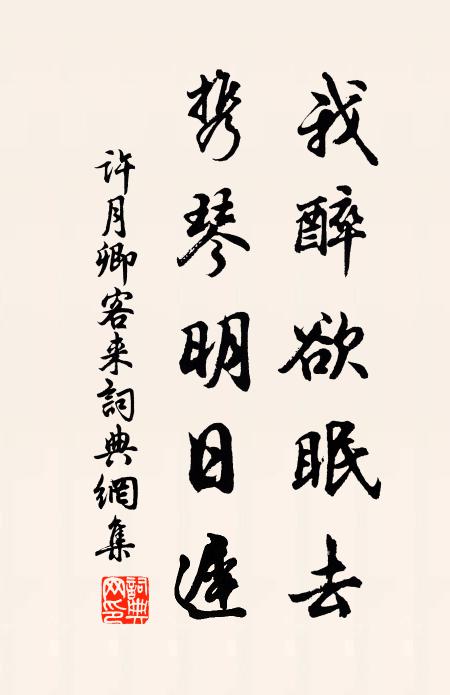 我醉欲眠去
携琴明日遲
許月卿客来詞典網集
詞典网印